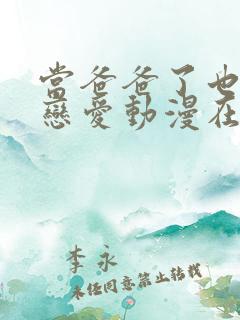 當爸爸了也
戀愛動漫在
李永
未经同意禁止转载